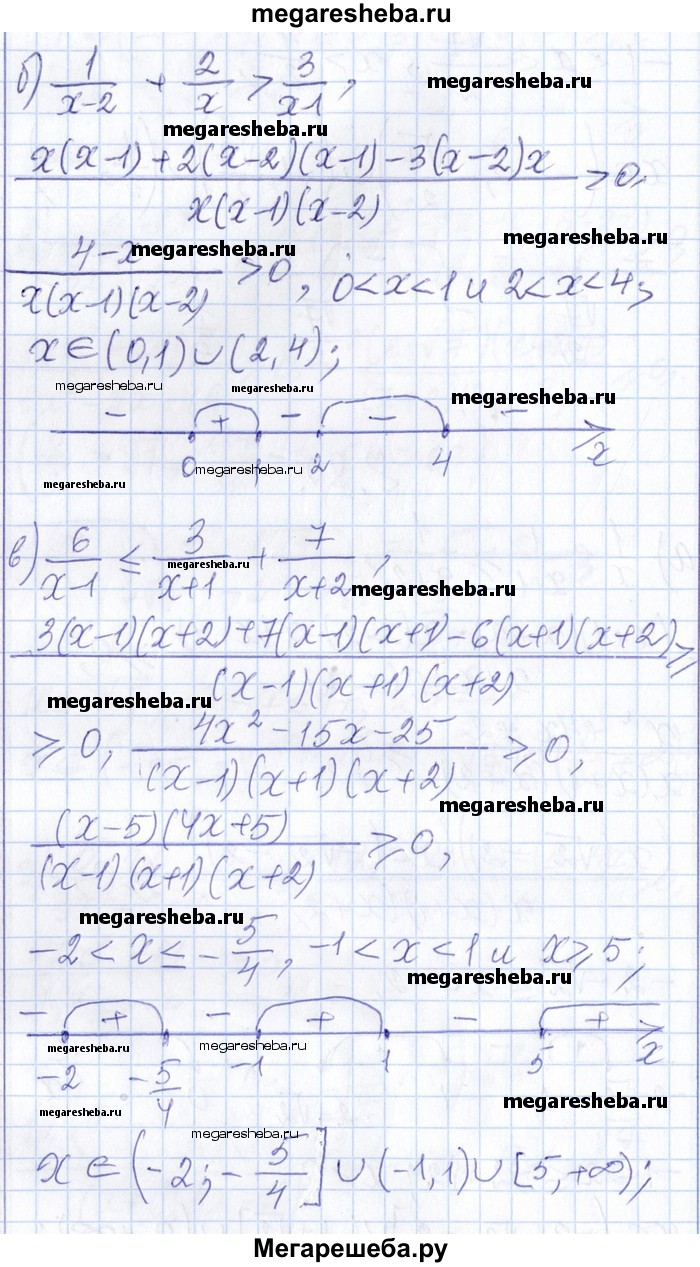 megaresheba.ru
б) 1/(x-2) + 2/x > 3/(x1) , megaresheba.ru
megaresheba.ru
(x(x-1)+2(x-2)(x-1)-3(x-2)x)/(x(x-1)(x-2)) > 0,
megaresheba.ru
(4-x)/(x(x-1)(x-2)) > 0, 0<x<1 и 2<x<4;
megaresheba.ru
x∈(0,1)∪(2,4);
megaresheba.ru megaresheba.ru megaresheba.ru
- + - - -
0 megaresheba.ru 1 2 4 x
megaresheba.ru
в) 6/(x-1) ≤ 3/(x+1) + 7/(x+2) ,
megaresheba.ru
(3(x-1)(x+2)+7(x-1)(x+1)-6(x+1)(x+2))/((x-1)(x+1)(x+2)) ≥
megaresheba.ru
≥ 0, (4x²-15x-25)/((x-1)(x+1)(x+2)) ≥ 0,
megaresheba.ru
((x-5)(4x+5))/((x-1)(x+1)(x+2)) ≥ 0,
megaresheba.ru
-2<x≤-5/4, -1<x<1 и x≥5;
megaresheba.ru
- + - + - +
megaresheba.ru megaresheba.ru
-2 -5/4 -1 1 5 x
megaresheba.ru megaresheba.ru
megaresheba.ru
x∈(-2;-5/4]∪(-1,1)∪[5,+∞);
Мегарешеба.ру